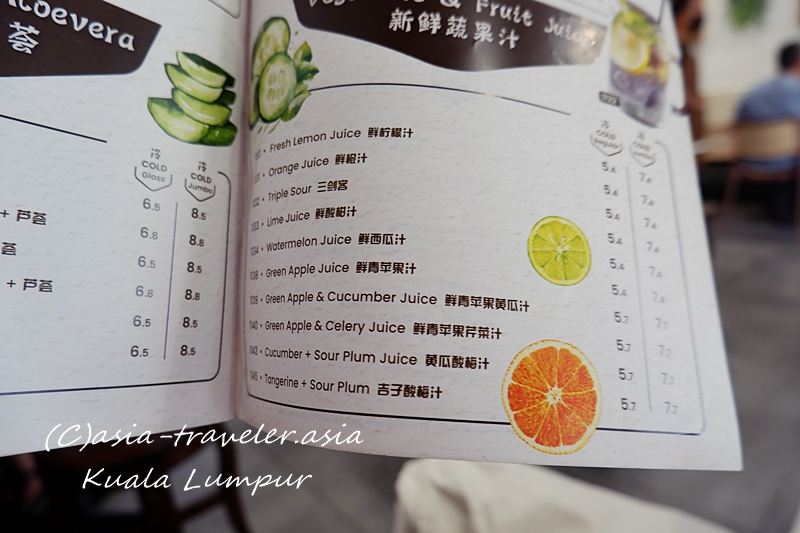 loevera
荟
冷 冷
COLD COLD
Glass Jumbo
6.5 8.5
+ 芦荟 6.8 8.8
荟 6.5 8.5
+ 芦荟 6.8 8.8
6.5 8.5
6.5 8.5
& Fruit Juice
新鲜蔬果汁
冷 冷
COLD COLD
Regular
Fresh Lemon Juice 鲜柠檬汁 5.4 7.4
Orange Juice 鲜橙汁 5.4 7.4
Triple Sour 三剑客 5.4 7.4
Lime Juice 鲜酸柑汁 5.4 7.4
134 • Watermelon Juice 鲜西瓜汁 5.4 7.4
138 • Green Apple Juice 鲜青苹果汁 5.4 7.4
139 • Green Apple & Cucumber Juice 鲜青苹果黄瓜汁 5.7 7.7
140 • Green Apple & Celery Juice 鲜青苹果芹菜汁 5.7 7.7
143 • Cucumber + Sour Plum Juice 黄瓜酸梅汁 5.7 7.7
145 • Tangerine + Sour Plum 吉子酸梅汁 5.7 7.7
(C)asia-traveler.asia
Kuala Lumpur